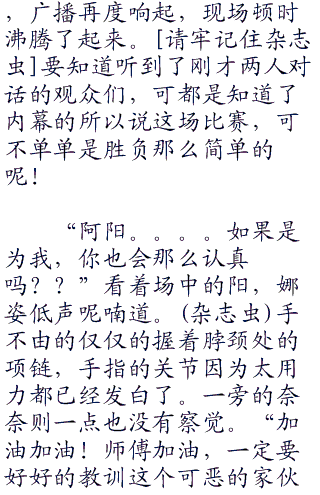 ，广播再度响起，现场顿时
沸腾了起来。[请牢记住杂志
虫]要知道听到了刚才两人对
话的观众们，可都是知道了
内幕的所以说这场比赛，可
不单单是胜负那么简单的
呢！
“阿阳。。。。如果是
为我，你也会那么认真
吗？？”看着场中的阳，娜
姿低声呢喃道。(杂志虫)手
不由的仅仅的握着脖颈处的
项链，手指的关节因为太用
力都已经发白了。一旁的奈
奈则一点也没有察觉。“加
油加油！师傅加油，一定要
好好的教训这个可恶的家伙